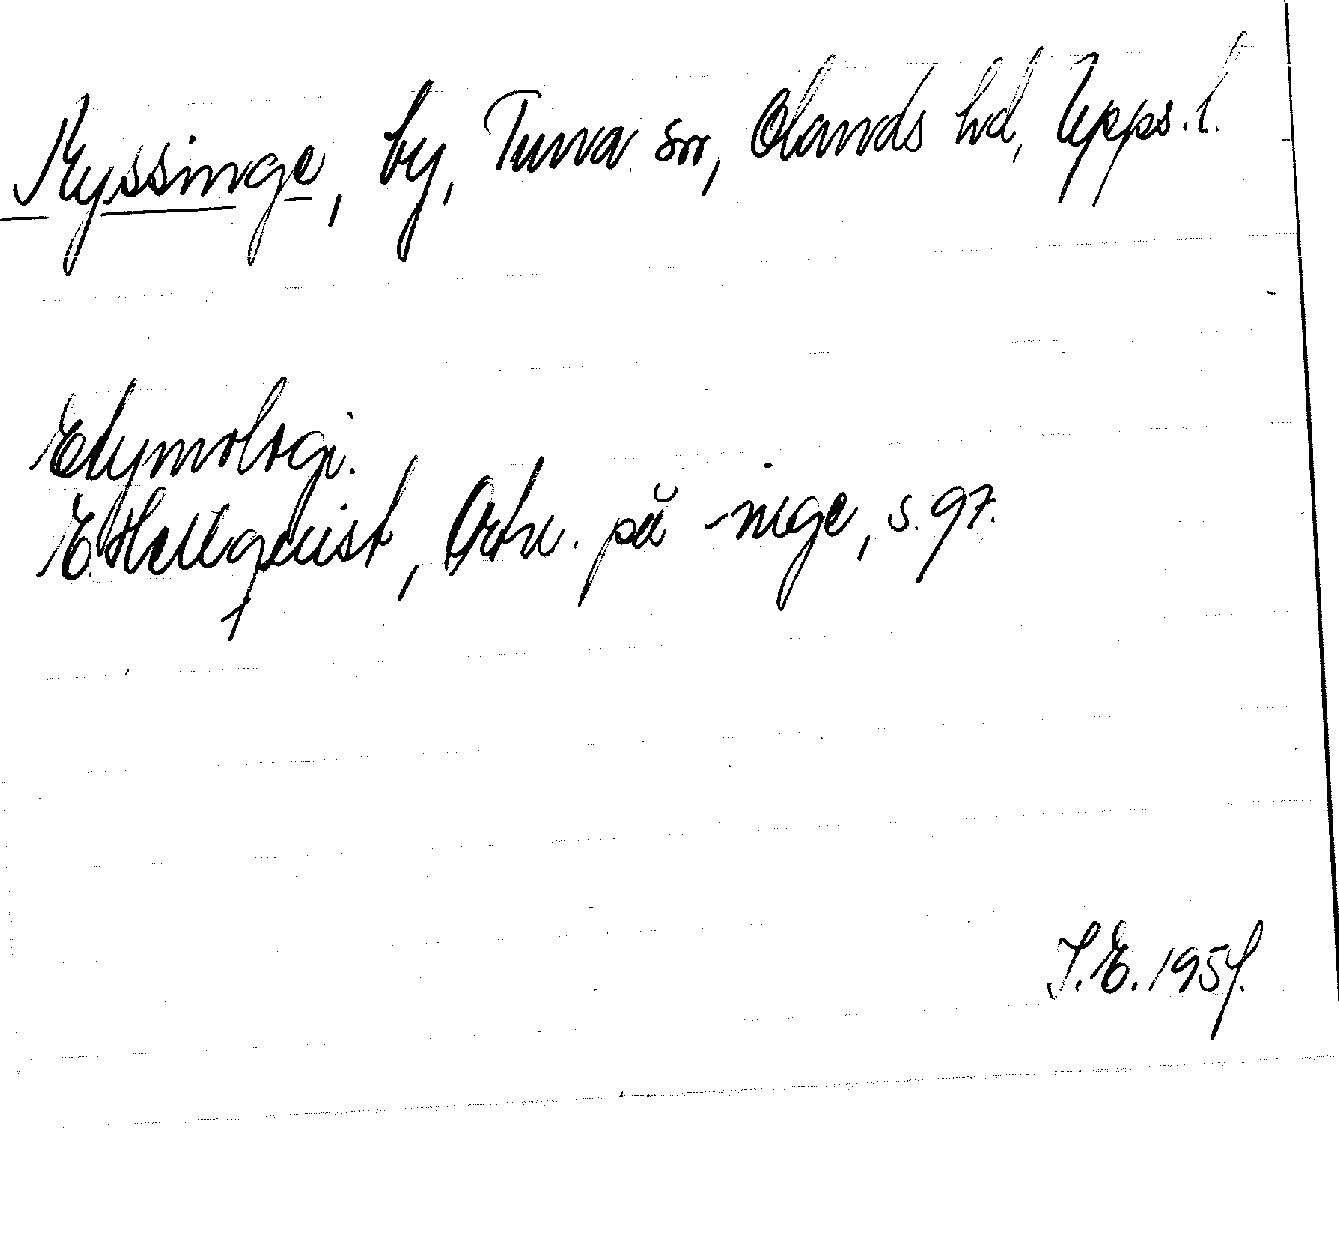 Kyssinge, by, Tuna sn, Olands hd, Upps. l.
Etymologi.
E. Hellquist, Ortn. på -inge, s. 97.
S. E. 1957.